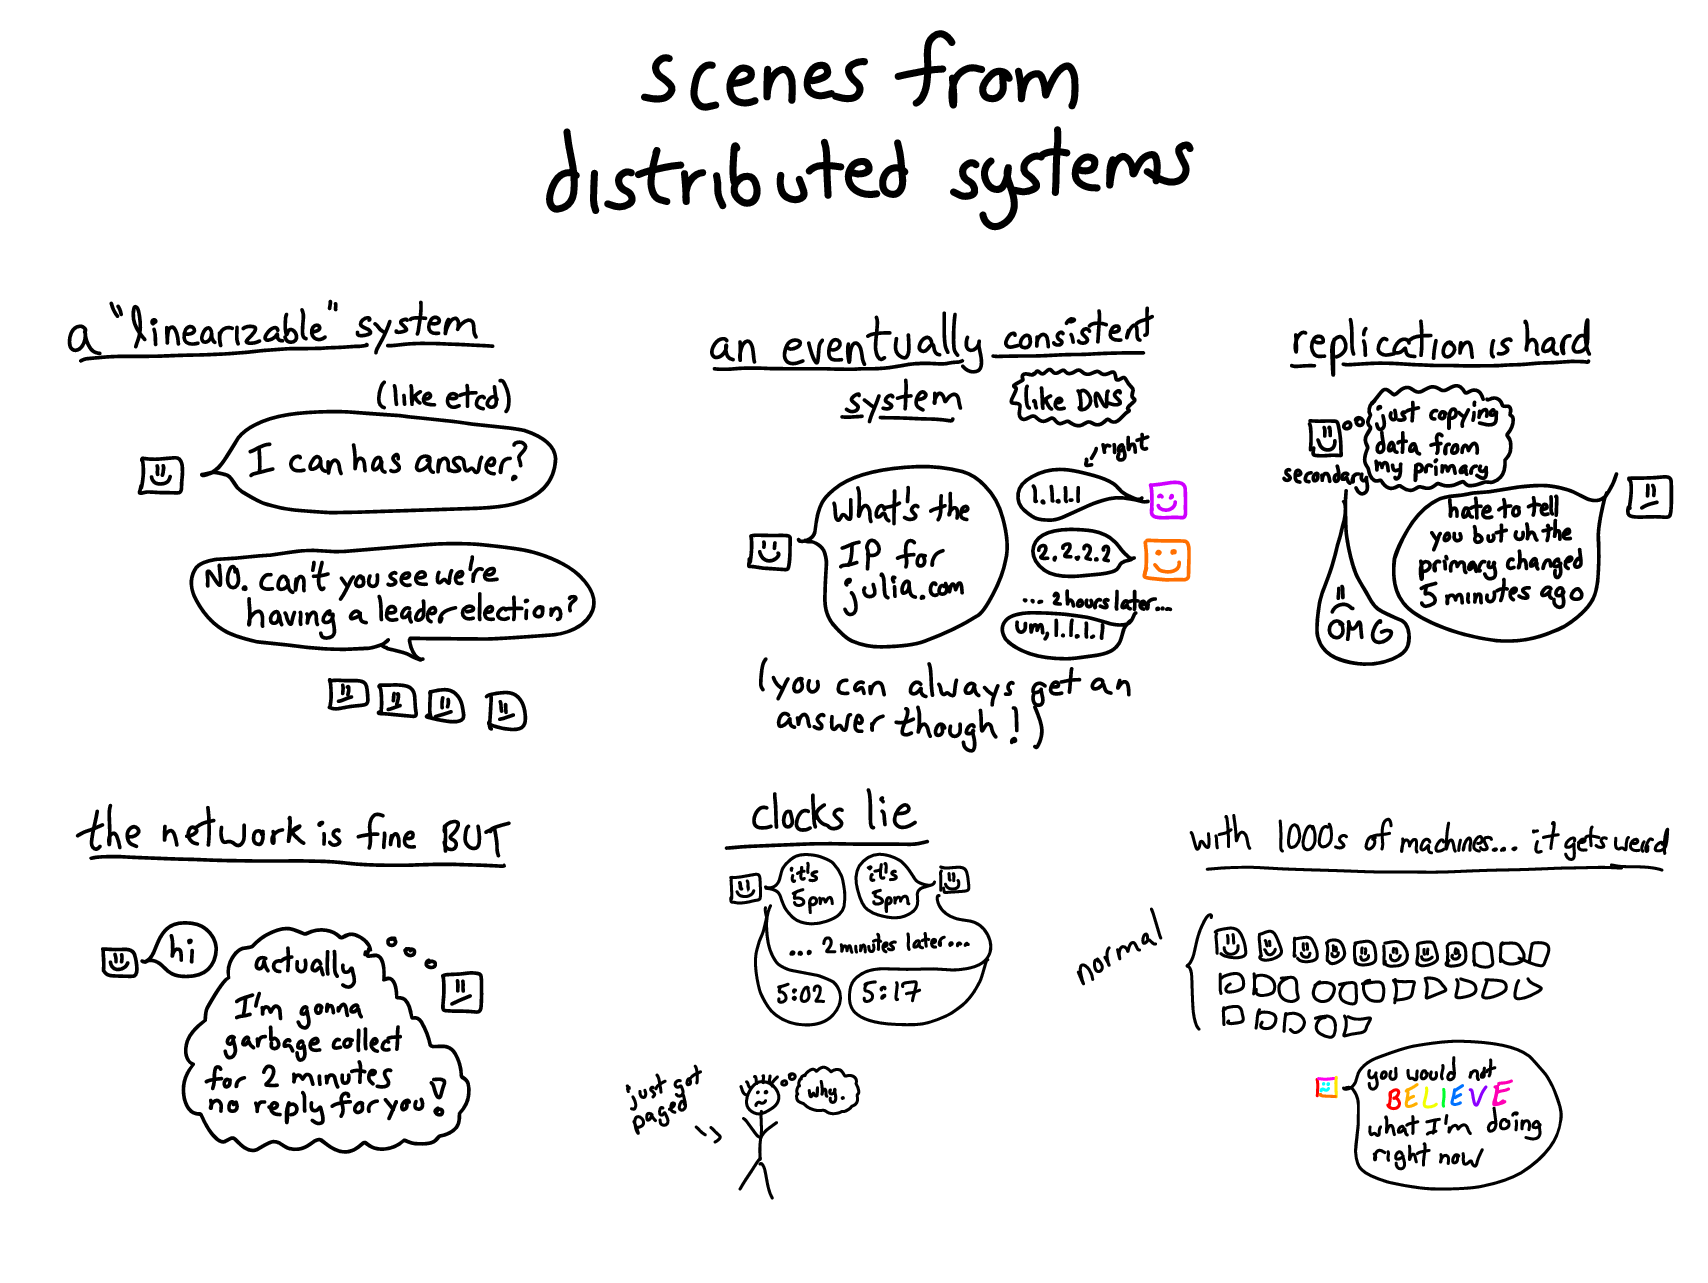 scenes from
distributed systems
a "linearizable" system
(like etcd)
I can has answer?
NO. can't you see we're
having a leader election?
an eventually consistent
system
like DNS
What's the
IP for
julia.com
right
1.1.1.1
2.2.2.2
... 2 hours later...
um, 1.1.1.1
(you can always get an
answer though!)
replication is hard
secondary
just copying
data from
my primary
hate to tell
you but uh the
primary changed
5 minutes ago
OMG
the network is fine BUT
hi
actually
I'm gonna
garbage collect
for 2 minutes
no reply for you!
clocks lie
it's
5pm
it's
5pm
... 2 minutes later...
5:02
5:17
just got
paged
why.
with 1000s of machines... it gets weird
normal
you would not
BELIEVE
what I'm doing
right now